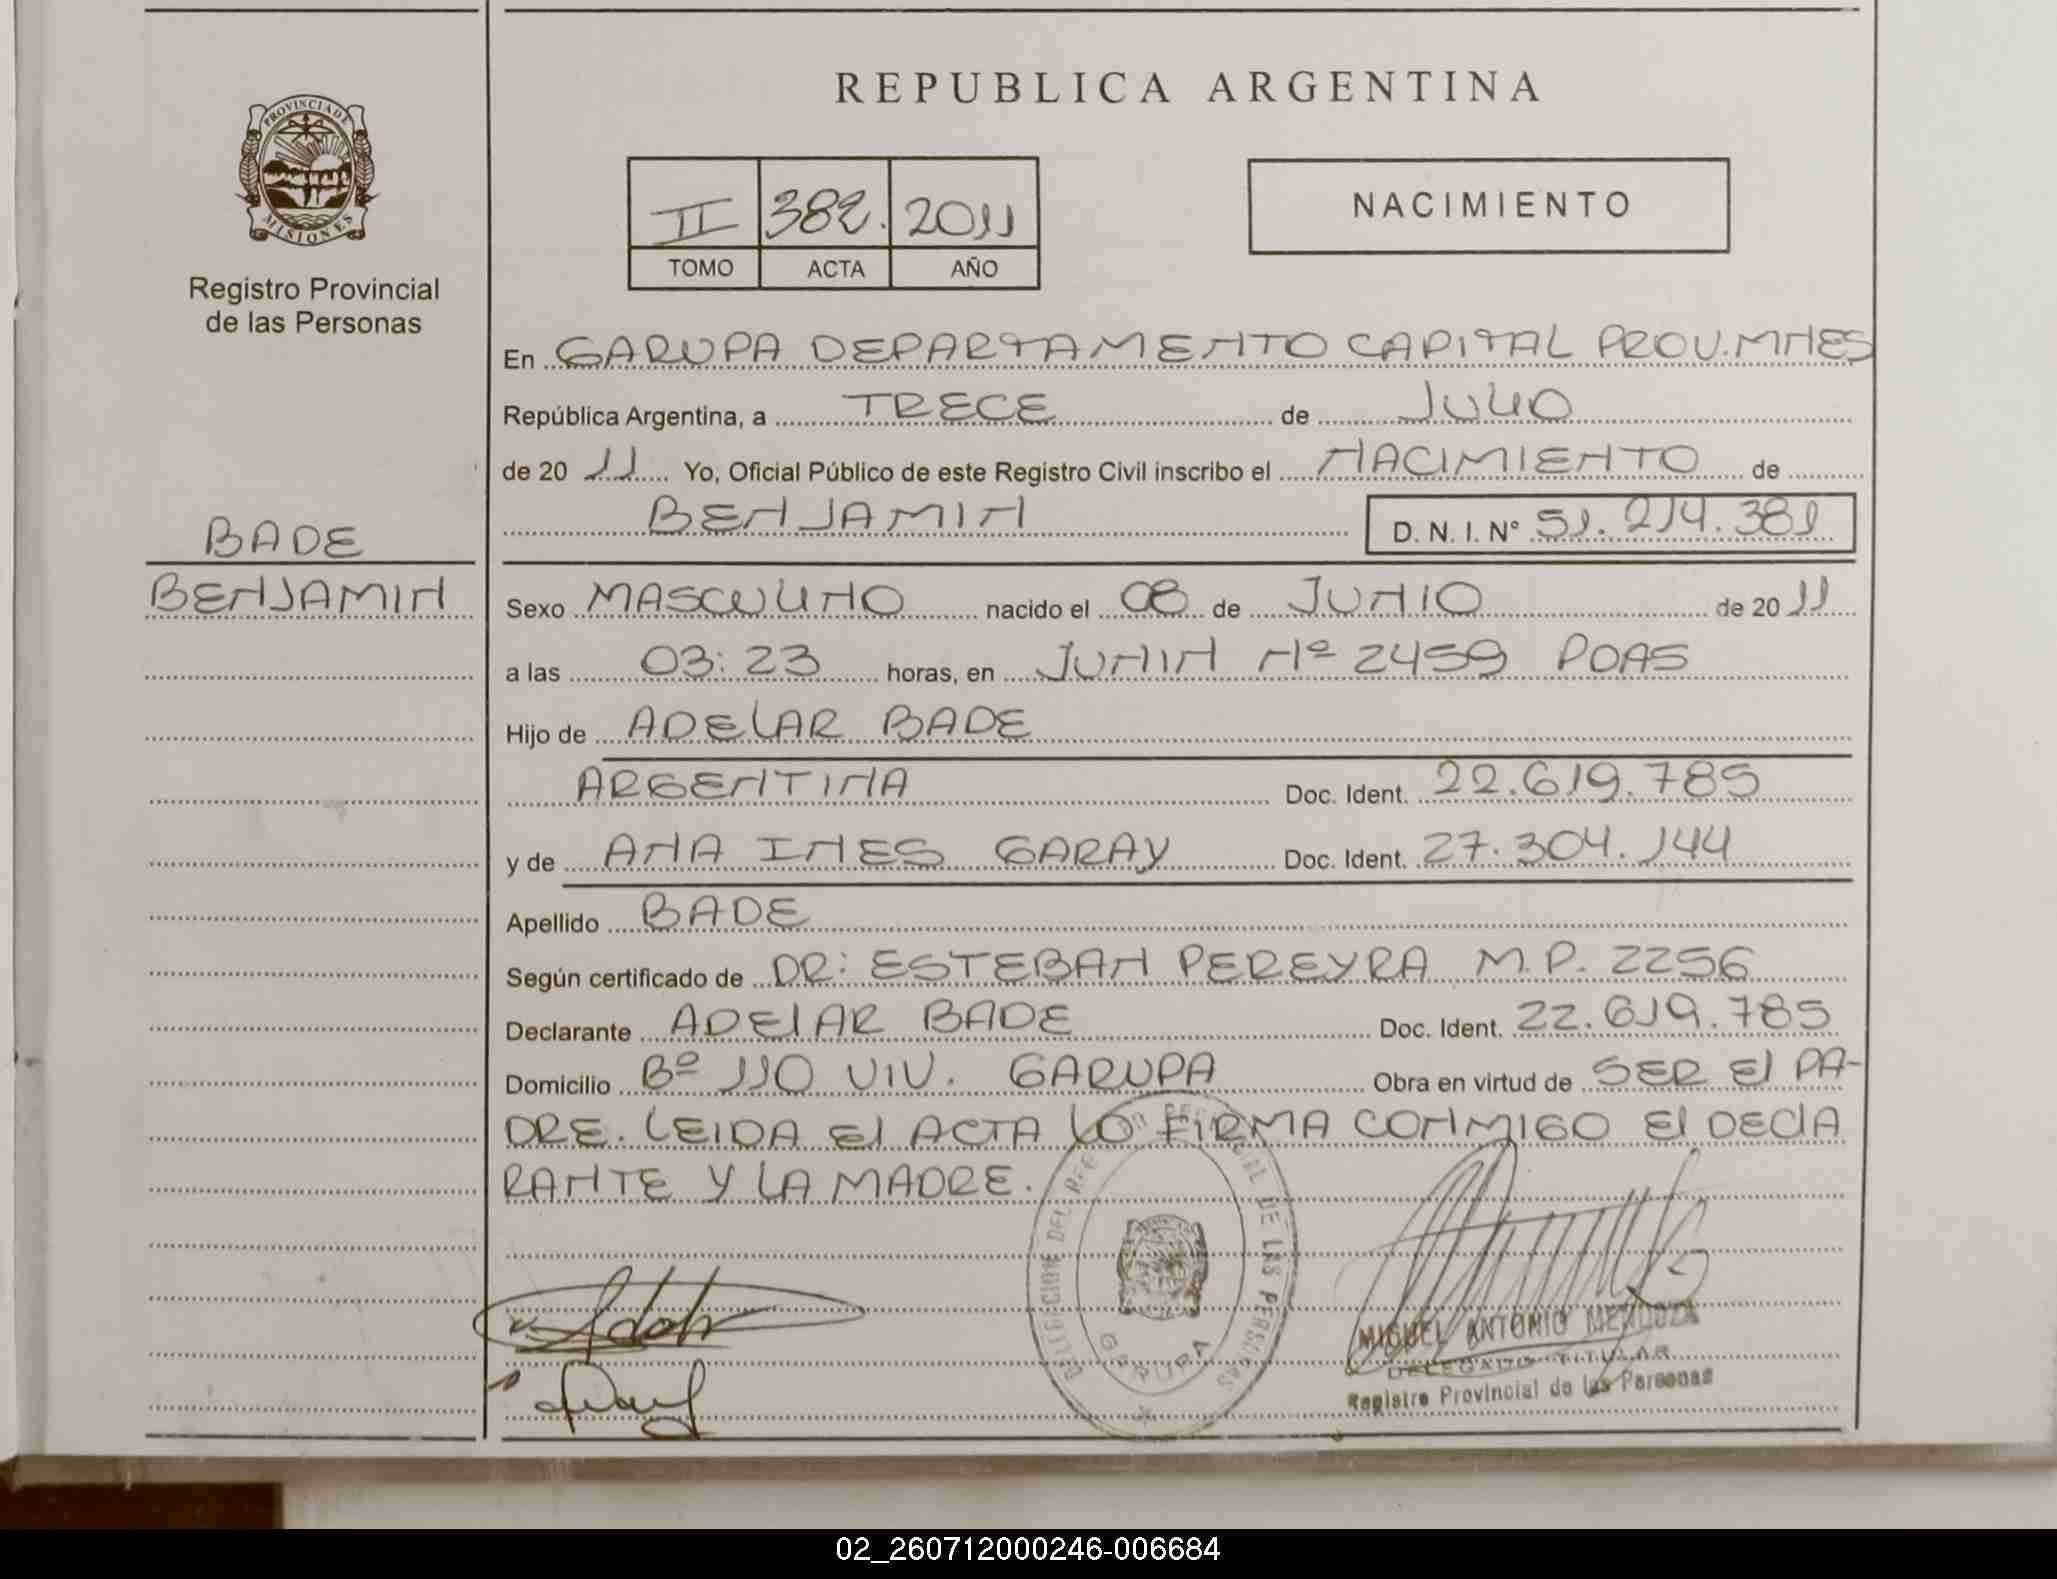 REPUBLICA ARGENTINA
PROVINCIA DE MISIONES
Registro Provincial
de las Personas
II 382. 2011
TOMO ACTA AÑO
NACIMIENTO
En GARUPA DEPARTAMENTO CAPITAL PROV.MNES
República Argentina, a TRECE de JULIO
de 20 11 Yo, Oficial Público de este Registro Civil inscribo el NACIMIENTO de
BENJAMIN D. N. I. N° 51.214.381
BADE
BENJAMIN
Sexo MASCULINO nacido el 08 de JUNIO de 20 11
a las 03:23 horas, en JUNIN Nº 2459 POAS
Hijo de ADELAR BADE
ARGENTINA Doc. Ident. 22.619.785
y de ANA INES GARAY Doc. Ident. 27.304.144
Apellido BADE
Según certificado de DR: ESTEBAN PEREYRA M.P. 2256
Declarante ADElAR BADE Doc. Ident. 22.619.785
Domicilio Bº 110 VIV. GARUPA Obra en virtud de SER El PA-
DRE. LEIDA El ACTA LO FIRMA CONMIGO El DEClA
RANTE Y LA MADRE.
DELEGACION DEL REGISTRO PROVINCIAL DE LAS PERSONAS
GARUPA
MIGUEL ANTONIO MENDOZA
DELEGADO TITULAR
Registro Provincial de las Personas
02_260712000246-006684